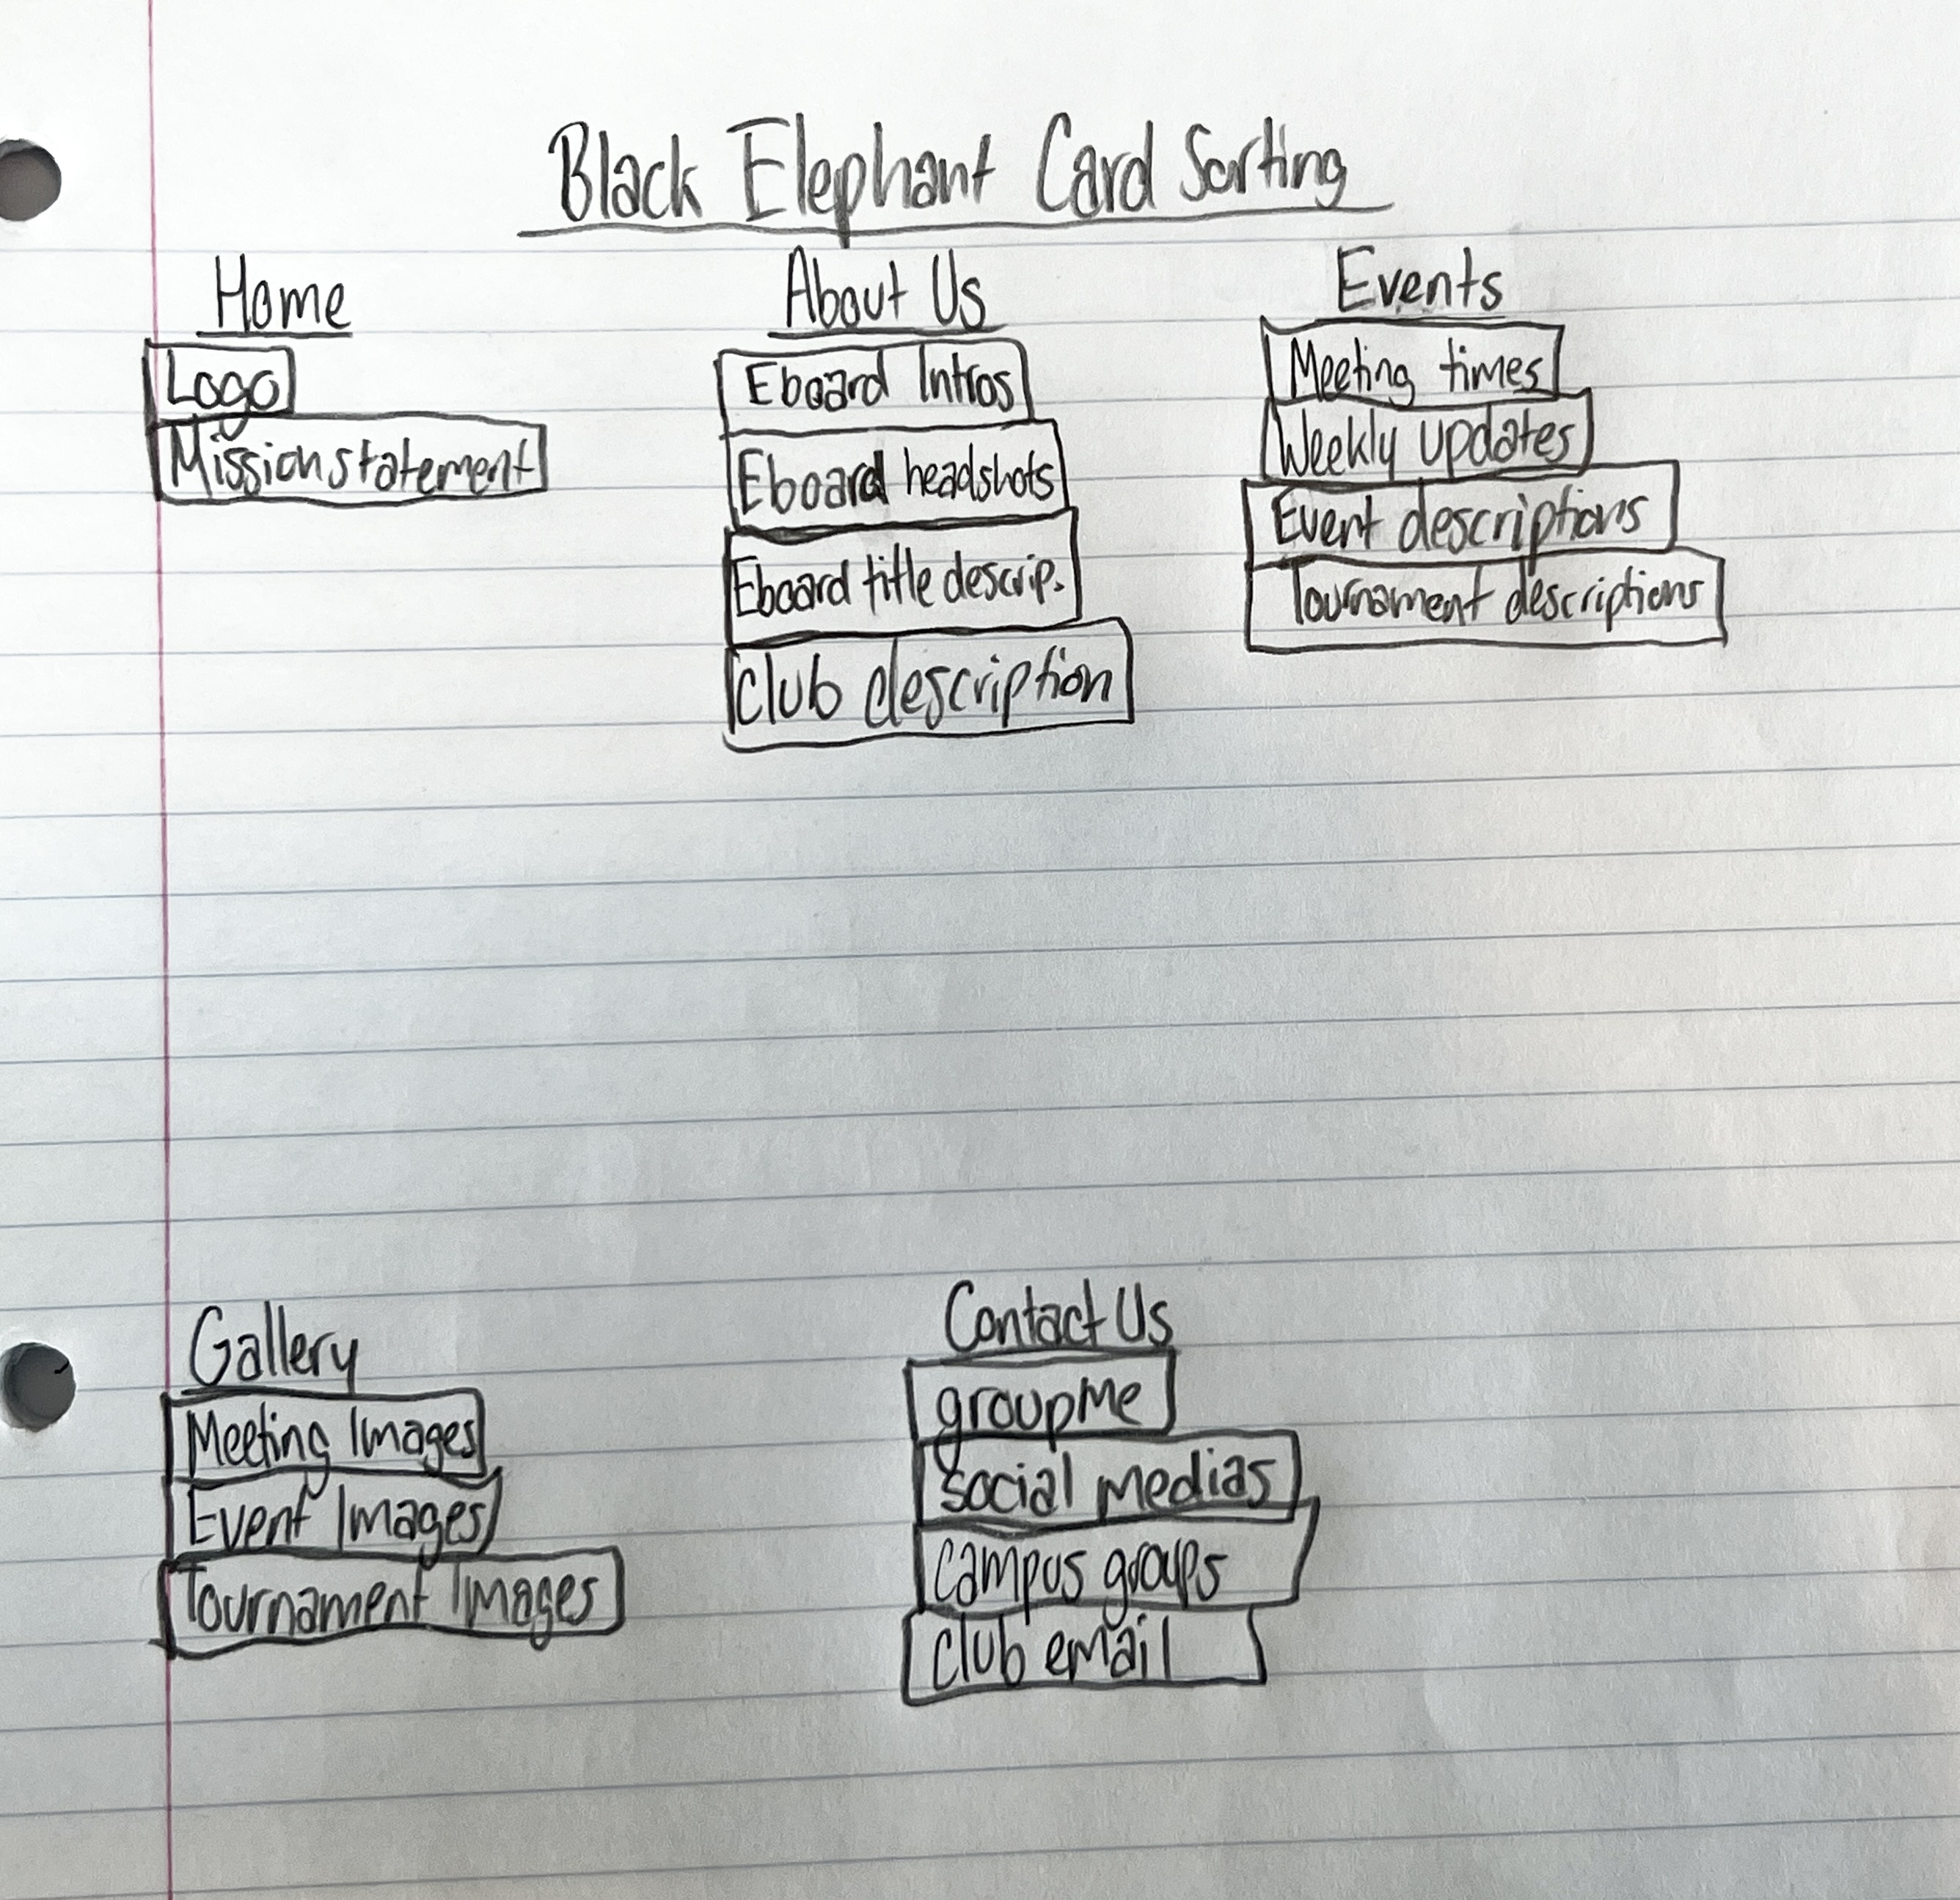 Black Elephant Card Sorting
Home
Logo
Mission statement
About Us
Eboard Intros
Eboard headshots
Eboard title descrip.
club description
Events
Meeting times
Weekly updates
Event descriptions
Tournament descriptions
Gallery
Meeting Images
Event Images
Tournament Images
Contact Us
groupMe
social medias
campus groups
club email